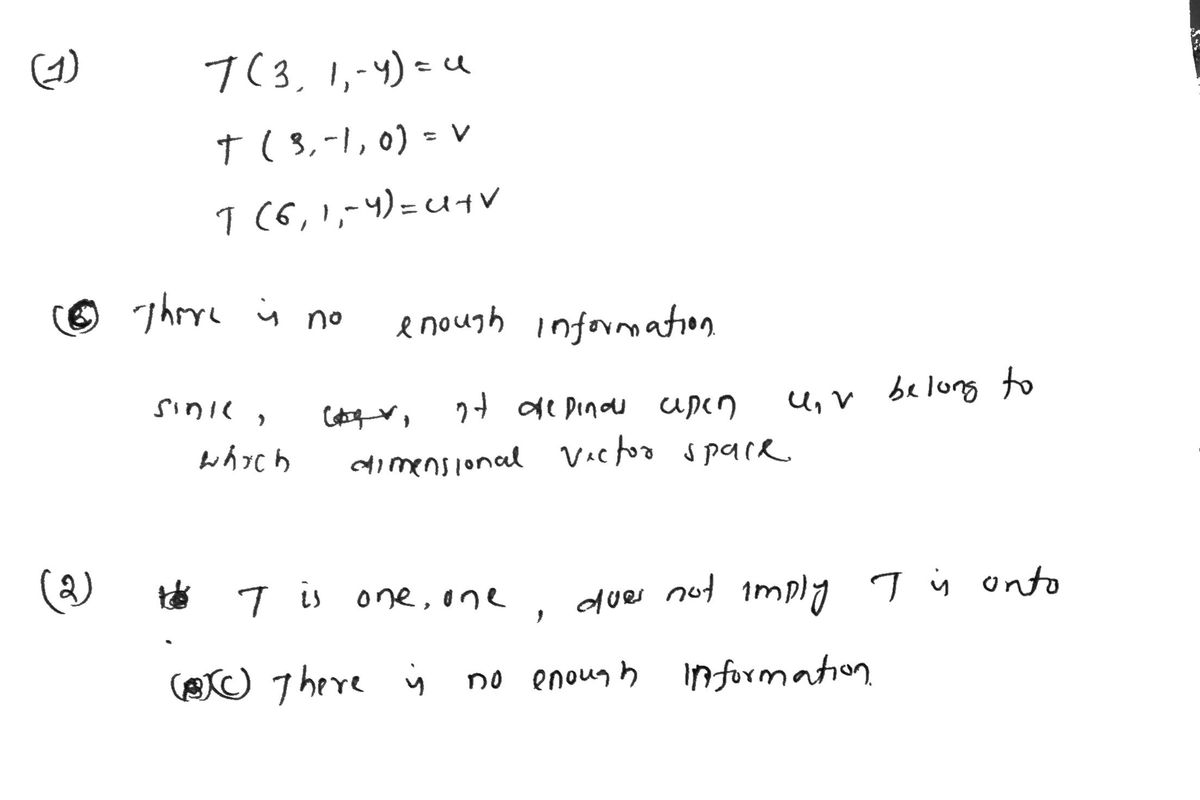 (1) T(3, 1,-4) = u
T(3,-1, 0) = v
T(6, 1,-4) = u+v
There is no enough information.
since, it depends upon u, v belong to
which dimensional vector space
(2) T is one, one, does not imply T is onto
(C) There is no enough information.